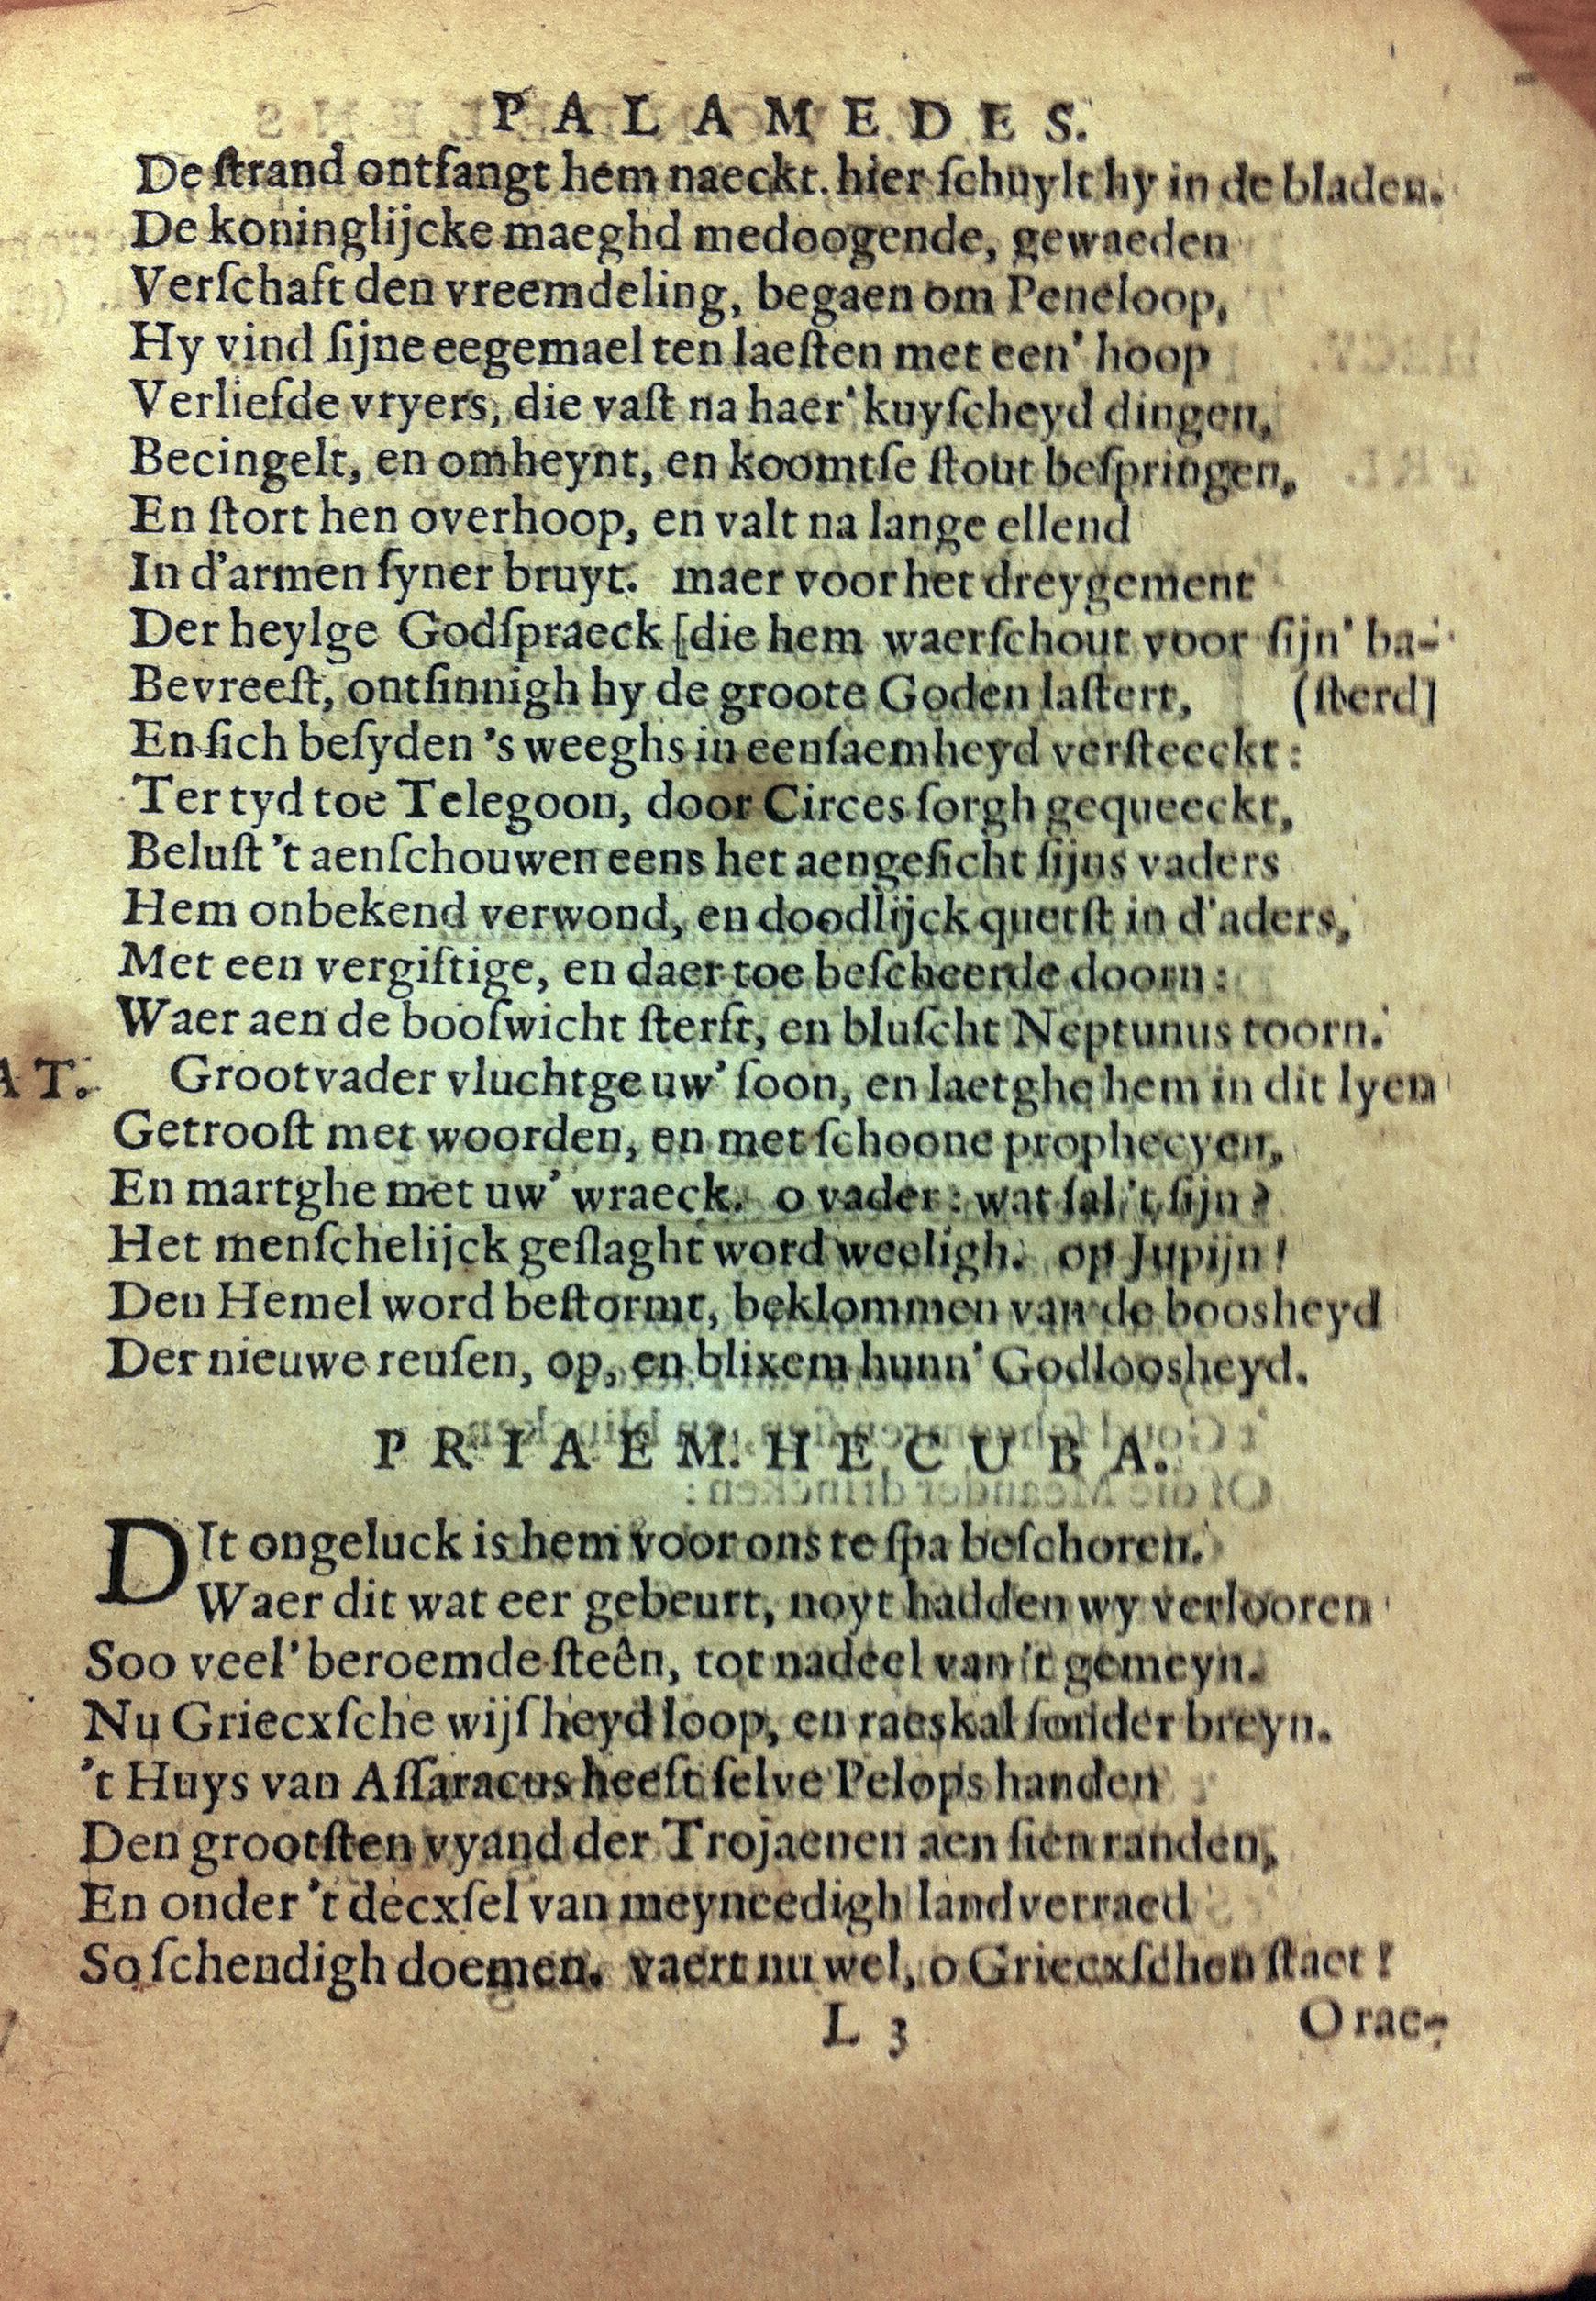 PALAMEDES.
De ſtrand ontfangt hem naeckt. hier ſchuylt hy in de bladen.
De koninglijcke maeghd medoogende, gewaeden
Verſchaft den vreemdeling, begaen om Peneloop,
Hy vind ſijne eegemael ten laeſten met een' hoop
Verliefde vryers, die vaſt na haer' kuyſcheyd dingen,
Becingelt, en omheynt, en koomtſe ſtout beſpringen,
En ſtort hen overhoop, en valt na lange ellend
In d'armen ſyner bruyt. maer voor het dreygement
Der heylge Godſpraeck [die hem waerſchout voor ſijn' ba-
Bevreeſt, ontſinnigh hy de groote Goden laſtert, (ſterd]
En ſich beſyden 's weeghs in eenſaemheyd verſteeckt:
Ter tyd toe Telegoon, door Circes ſorgh gequeeckt,
Beluſt 't aenſchouwen eens het aengeſicht ſijns vaders
Hem onbekend verwond, en doodlijck quetſt in d'aders,
Met een vergiftige, en daer toe beſcheerde doorn:
Waer aen de booſwicht ſterft, en bluſcht Neptunus toorn.
AT. Grootvader vluchtge uw' ſoon, en laetghe hem in dit lyen
Getrooſt met woorden, en met ſchoone prophecyen,
En martghe met uw' wraeck. o vader: wat ſal 't ſijn?
Het menſchelijck geſlaght word weeligh. op Jupijn!
Den Hemel word beſtormt, beklommen van de boosheyd
Der nieuwe reuſen, op, en blixem hunn' Godloosheyd.
PRIAEM. HECUBA.
DIt ongeluck is hem voor ons te ſpa beſchoren.
Waer dit wat eer gebeurt, noyt hadden wy verlooren
Soo veel' beroemde ſteên, tot nadeel van 't gemeyn.
Nu Griecxſche wijſheyd loop, en raeskal ſonder breyn.
't Huys van Aſſaracus heeft ſelve Pelops handen
Den grootſten vyand der Trojaenen aen ſien randen,
En onder 't decxſel van meyneedigh landverraed
So ſchendigh doemen. vaert nu wel, o Griecxſchen ſtaet!
L 3 O rae-